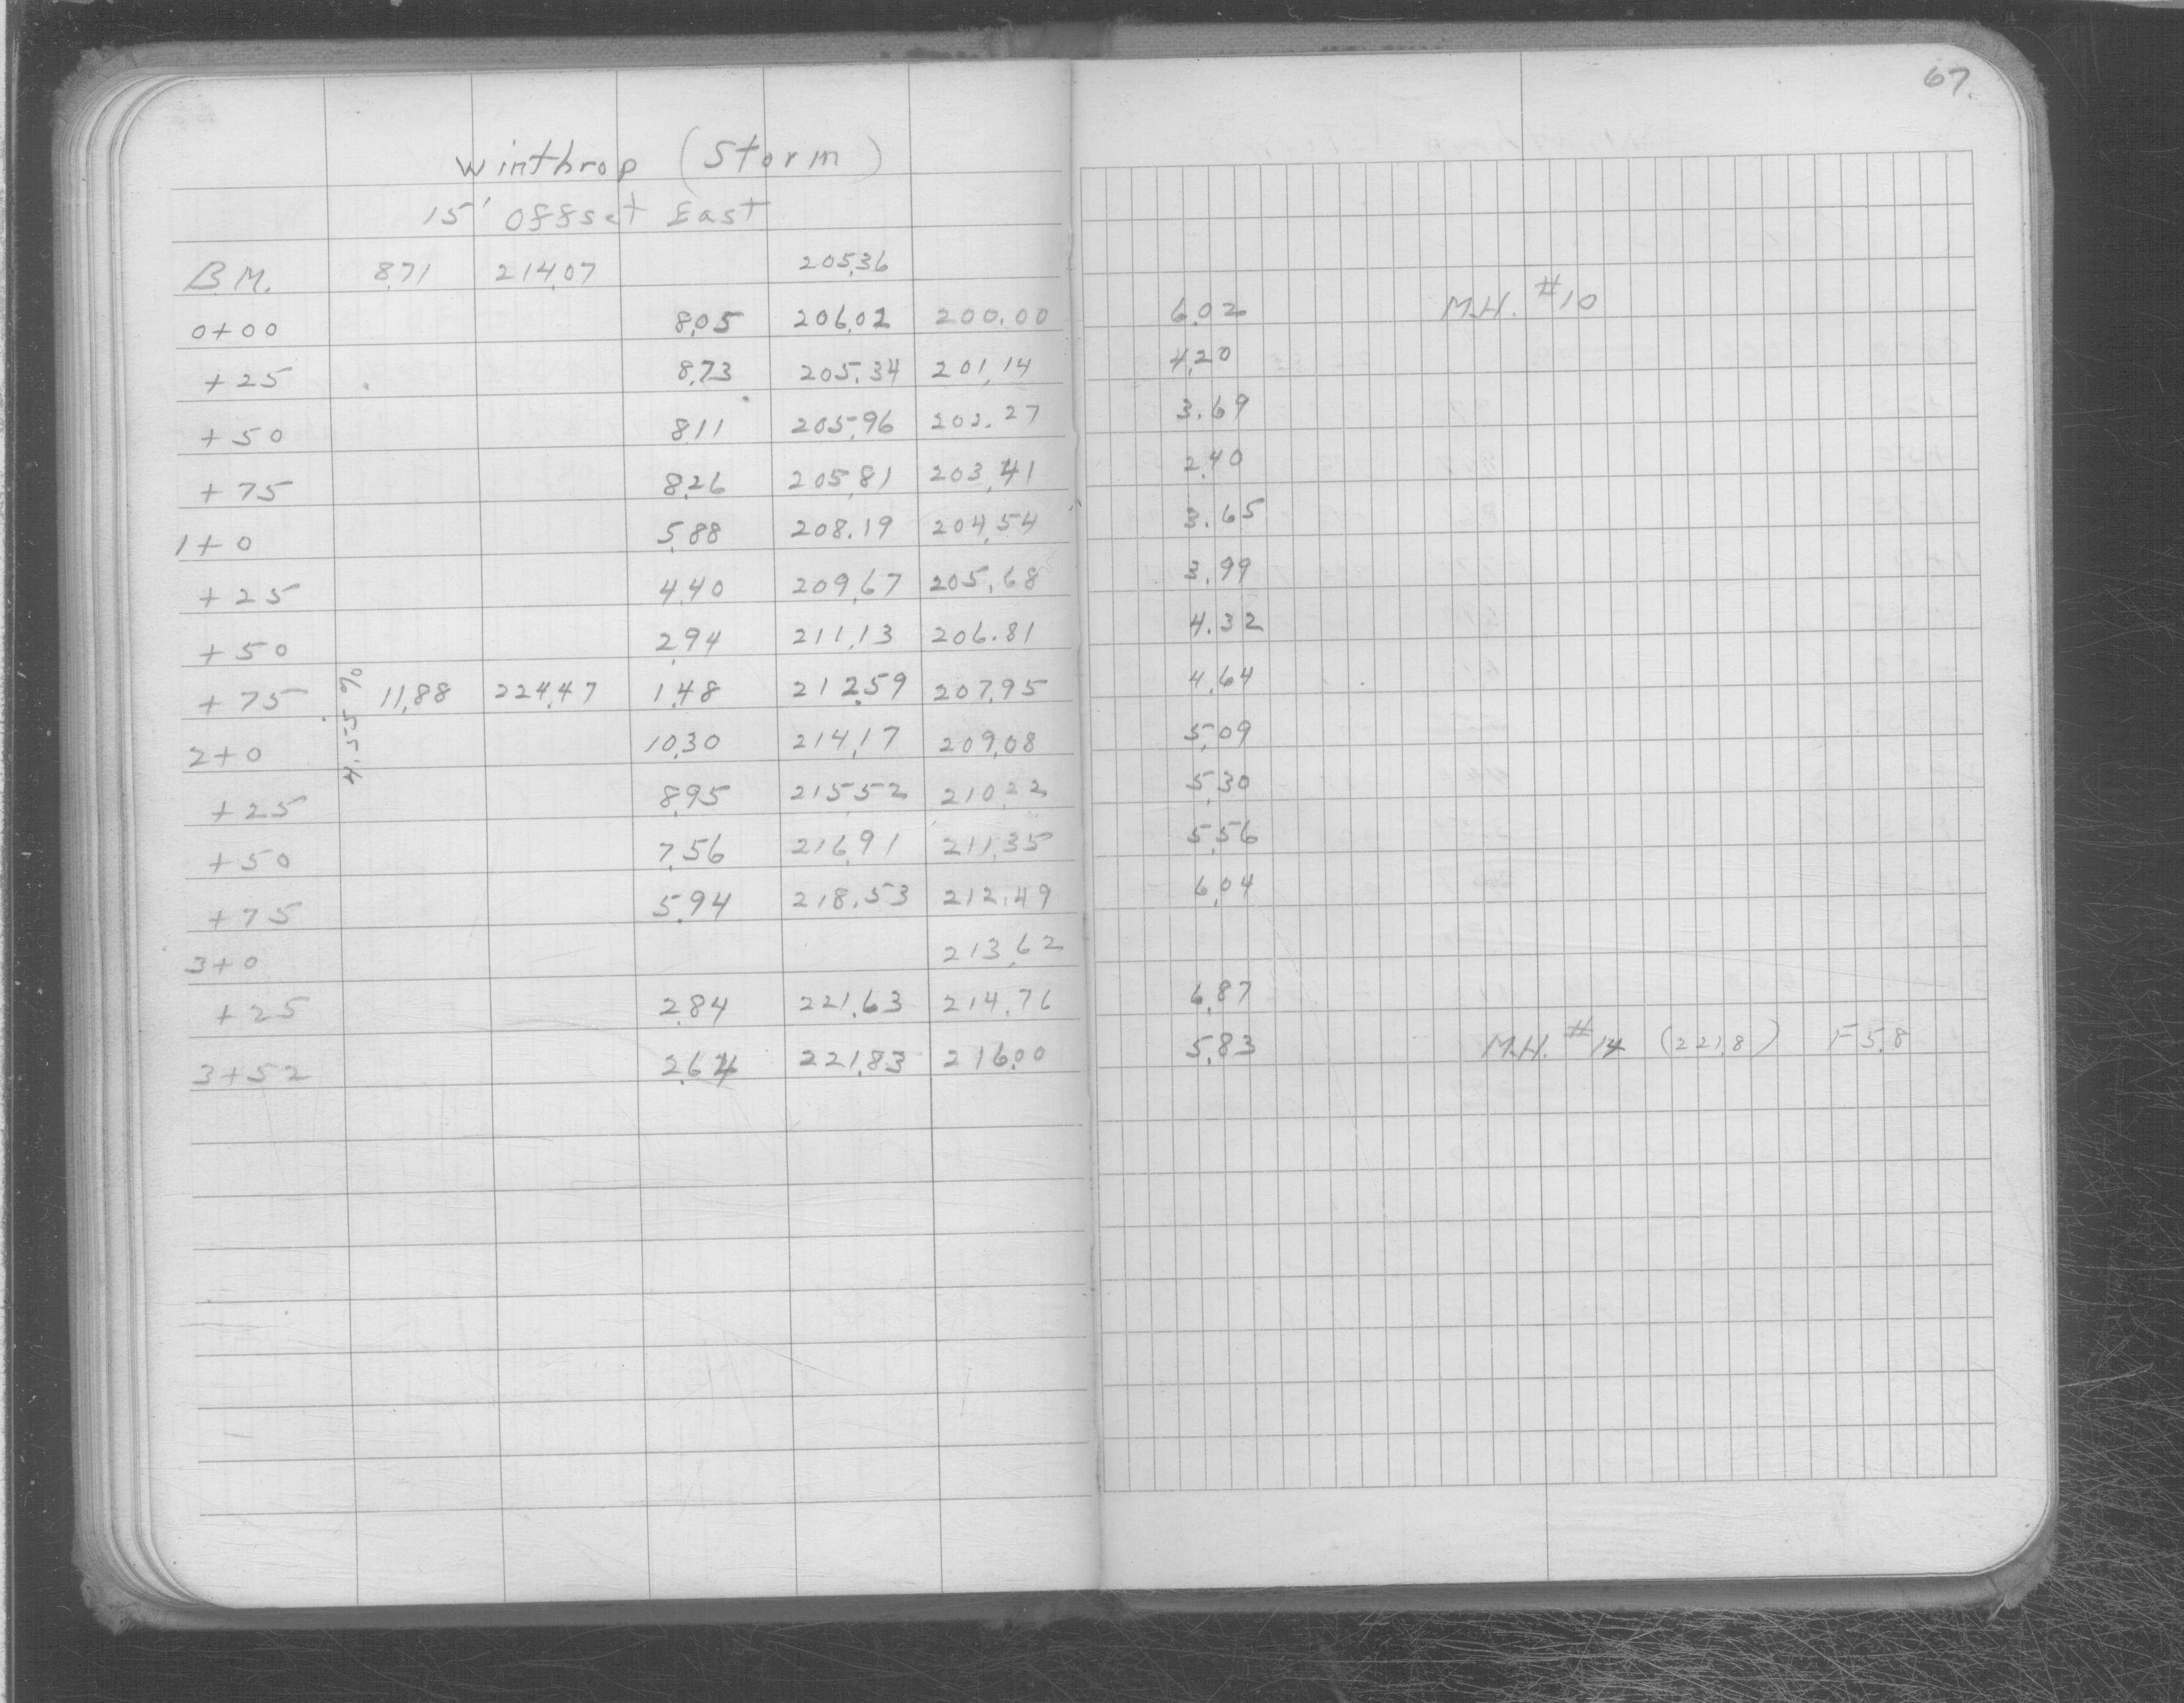 67.
Winthrop (Storm)
15' Offset East
B.M. 8.71 214.07 205.36
0+00 8.05 206.02 200.00 6.02 M.H. #10
+25 8.73 205.34 201.14 4.20
+50 8.11 205.96 202.27 3.69
+75 8.26 205.81 203.41 2.40
1+0 5.88 208.19 204.54 3.65
+25 4.40 209.67 205.68 3.99
+50 2.94 211.13 206.81 4.32
+75 11.88 224.47 1.48 212.59 207.95 4.64
4.55%
2+0 10.30 214.17 209.08 5.09
+25 8.95 215.52 210.22 5.30
+50 7.56 216.91 211.35 5.56
+75 5.94 218.53 212.49 6.04
3+0 213.62
+25 2.84 221.63 214.76 6.87
3+52 2.64 221.83 216.00 5.83 M.H. #14 (221.8) F 5.8